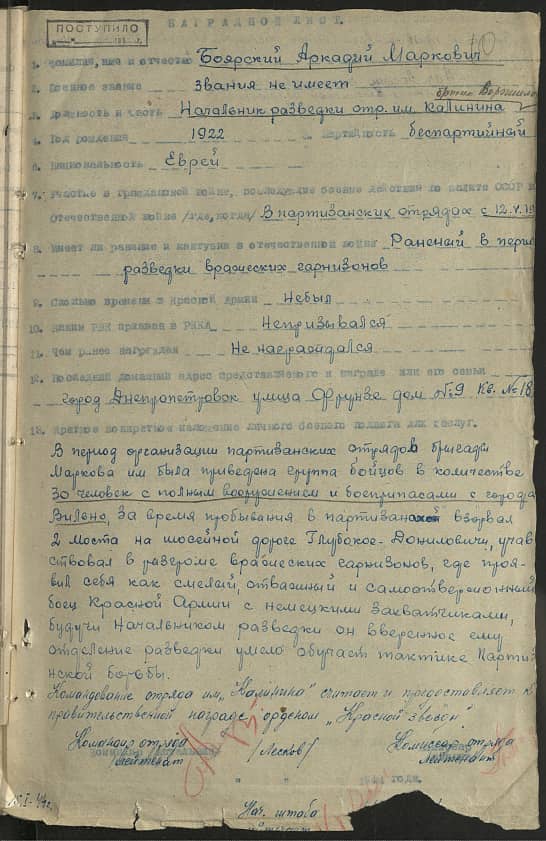 ПОСТУПИЛО
НАГРАДНОЙ ЛИСТ.
1. Фамилия, имя и отчество Боярский Аркадий Маркович
2. Военное звание звания не имеет
3. Должность и часть Начальник разведки отр. им. Калинина
4. Год рождения 1922 партийность беспартийный
6. Национальность Еврей
7. Участие в гражданской войне, последующие боевые действия по защите СССР и
Отечественной войне /где, когда/ В партизанских отрядах с 12.V.19
8. Имеет ли ранения и контузии в отечественной войне Раненый в пери
разведки вражеских гарнизонов
9. Сколько времени в Красной Армии Небыл
10. Каким РВК призван в РККА Непризывался
11. Чем ранее награжден Не награждался
12. Последний домашний адрес представляемого к награде или его семьи
город Днепропетровск улица Фрунзе дом №9 Кв. №18
13. Краткое конкретное изложение личного боевого подвига или заслуг.
В период организации партизанских отрядов бригады
Маркова им была приведена группа бойцов в количестве
30 человек с полным вооружением и боеприпасами с города
Вильно, за время пробывания в взорвал
2 моста на шосейной дороге Глубокое-Дониловичи, учав
ствовал в разгроме вражеских гарнизонов, где проя-
вил себя как смелый, отважный и самоотверженный
боец Красной Армии с немецкими захватчиками,
будучи Начальником разведки он вверенное ему
отделение разведки умело обучает тактике Парти
нской борьбы.
Командование отряда им „Калинина" считает и предоставляет к
правительственной награде орденом „Красной звезды".
Командир отряда Комиссар отряда
лейтенант /Лесков/ лейтенант
года.
Нач. штаба